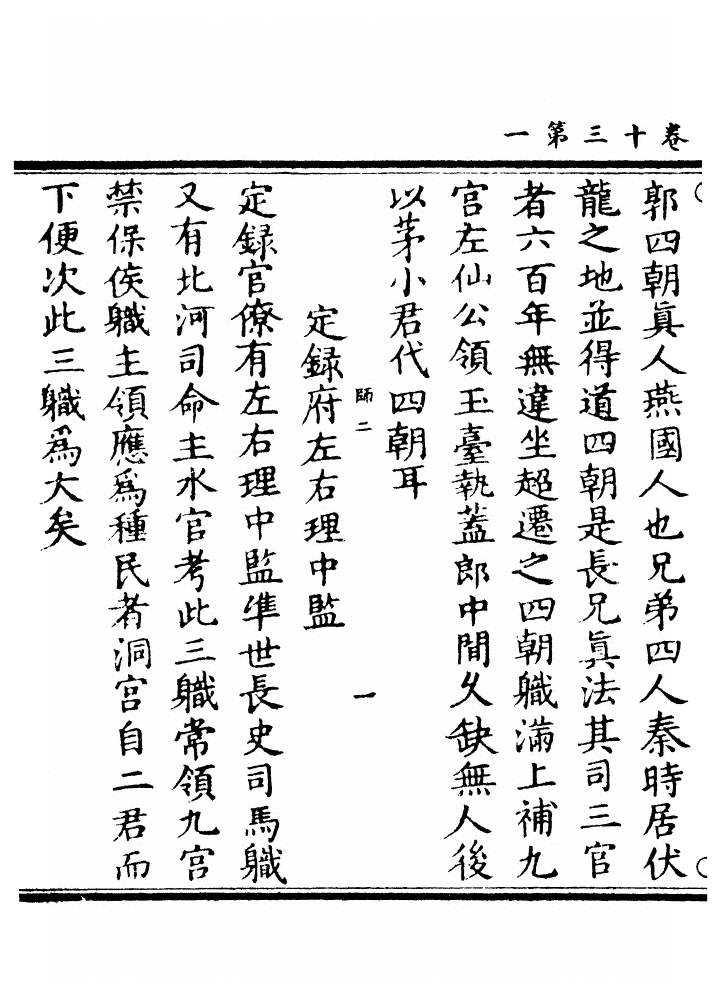 卷十三第一
郭四朝眞人燕國人也兄弟四人秦時居伏
龍之地並得道四朝是長兄眞法其司三官
者六百年無違坐超遷之四朝職滿上補九
宮左仙公領玉臺執蓋郎中間久缺無人後
以茅小君代四朝耳
師二 一
定録府左右理中監
定録官僚有左右理中監準世長史司馬職
又有北河司命主水官考此三職常領九宮
禁保侯職主領應爲種民者洞宮自二君而
下便次此三職爲大矣